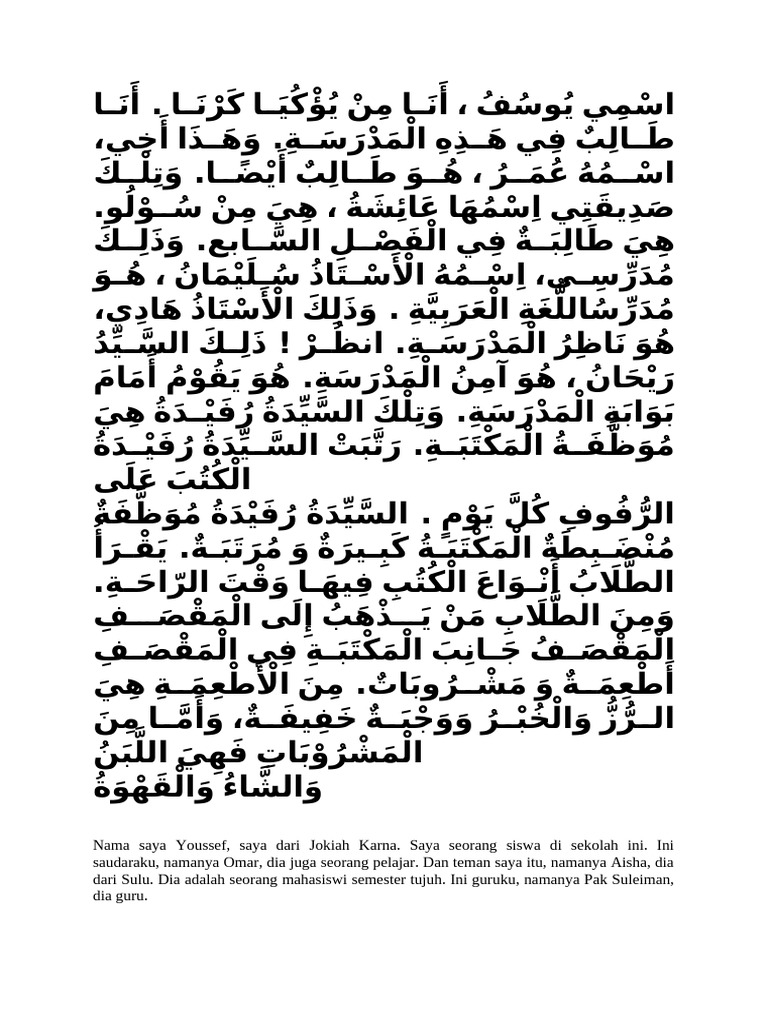 اسْمِي يُوسُفُ ، أَنَا مِنْ يُؤْكُيَا كَرْنَا . أَنَا
طَالِبٌ فِي هَذِهِ الْمَدْرَسَةِ. وَهَذَا أَخِي،
اسْمُهُ عُمَرُ ، هُوَ طَالِبٌ أَيْضًا. وَتِلْكَ
صَدِيقَتِي اِسْمُهَا عَائِشَةُ ، هِيَ مِنْ سُوْلُو.
هِيَ طَالِبَةٌ فِي الْفَصْلِ السَّابِعِ. وَذَلِكَ
مُدَرِّسِي، اِسْمُهُ الْأَسْتَاذُ سُلَيْمَانُ ، هُوَ
مُدَرِّسُاللُّغَةِ الْعَرَبِيَّةِ . وَذَلِكَ الْأَسْتَاذُ هَادِي،
هُوَ نَاظِرُ الْمَدْرَسَةِ. انظُرْ ! ذَلِكَ السَّيِّدُ
رَيْحَانُ ، هُوَ آمِنُ الْمَدْرَسَةِ. هُوَ يَقُوْمُ أَمَامَ
بَوَابَةِ الْمَدْرَسَةِ. وَتِلْكَ السَّيِّدَةُ رُفَيْدَةُ هِيَ
مُوَظَّفَةُ الْمَكْتَبَةِ. رَتَّبَتْ السَّيِّدَةُ رُفَيْدَةُ
الْكُتُبَ عَلَى
الرُّفُوفِ كُلَّ يَوْمٍ . السَّيِّدَةُ رُفَيْدَةُ مُوَظَّفَةٌ
مُنْضَبِطَةٌ الْمَكْتَبَةُ كَبِيرَةٌ وَ مُرَتَبَةٌ. يَقْرَأُ
الطُّلَابُ أَنْوَاعَ الْكُتُبِ فِيهَا وَقْتَ الرّاحَةِ.
وَمِنَ الطُّلَابِ مَنْ يَذْهَبُ إِلَى الْمَقْصَفِ
الْمَقْصَفُ جَانِبَ الْمَكْتَبَةِ فِي الْمَقْصَفِ
أَطْعِمَةٌ وَ مَشْرُوبَاتٌ. مِنَ الْأَطْعِمَةِ هِيَ
الرُّزُّ وَالْخُبْرُ وَوَجْبَةٌ خَفِيفَةٌ، وَأَمَّا مِنَ
الْمَشْرُوْبَاتِ فَهِيَ اللَّبَنُ
وَالشَّاءُ وَالْقَهْوَةُ
Nama saya Youssef, saya dari Jokiah Karna. Saya seorang siswa di sekolah ini. Ini
saudaraku, namanya Omar, dia juga seorang pelajar. Dan teman saya itu, namanya Aisha, dia
dari Sulu. Dia adalah seorang mahasiswi semester tujuh. Ini guruku, namanya Pak Suleiman,
dia guru.